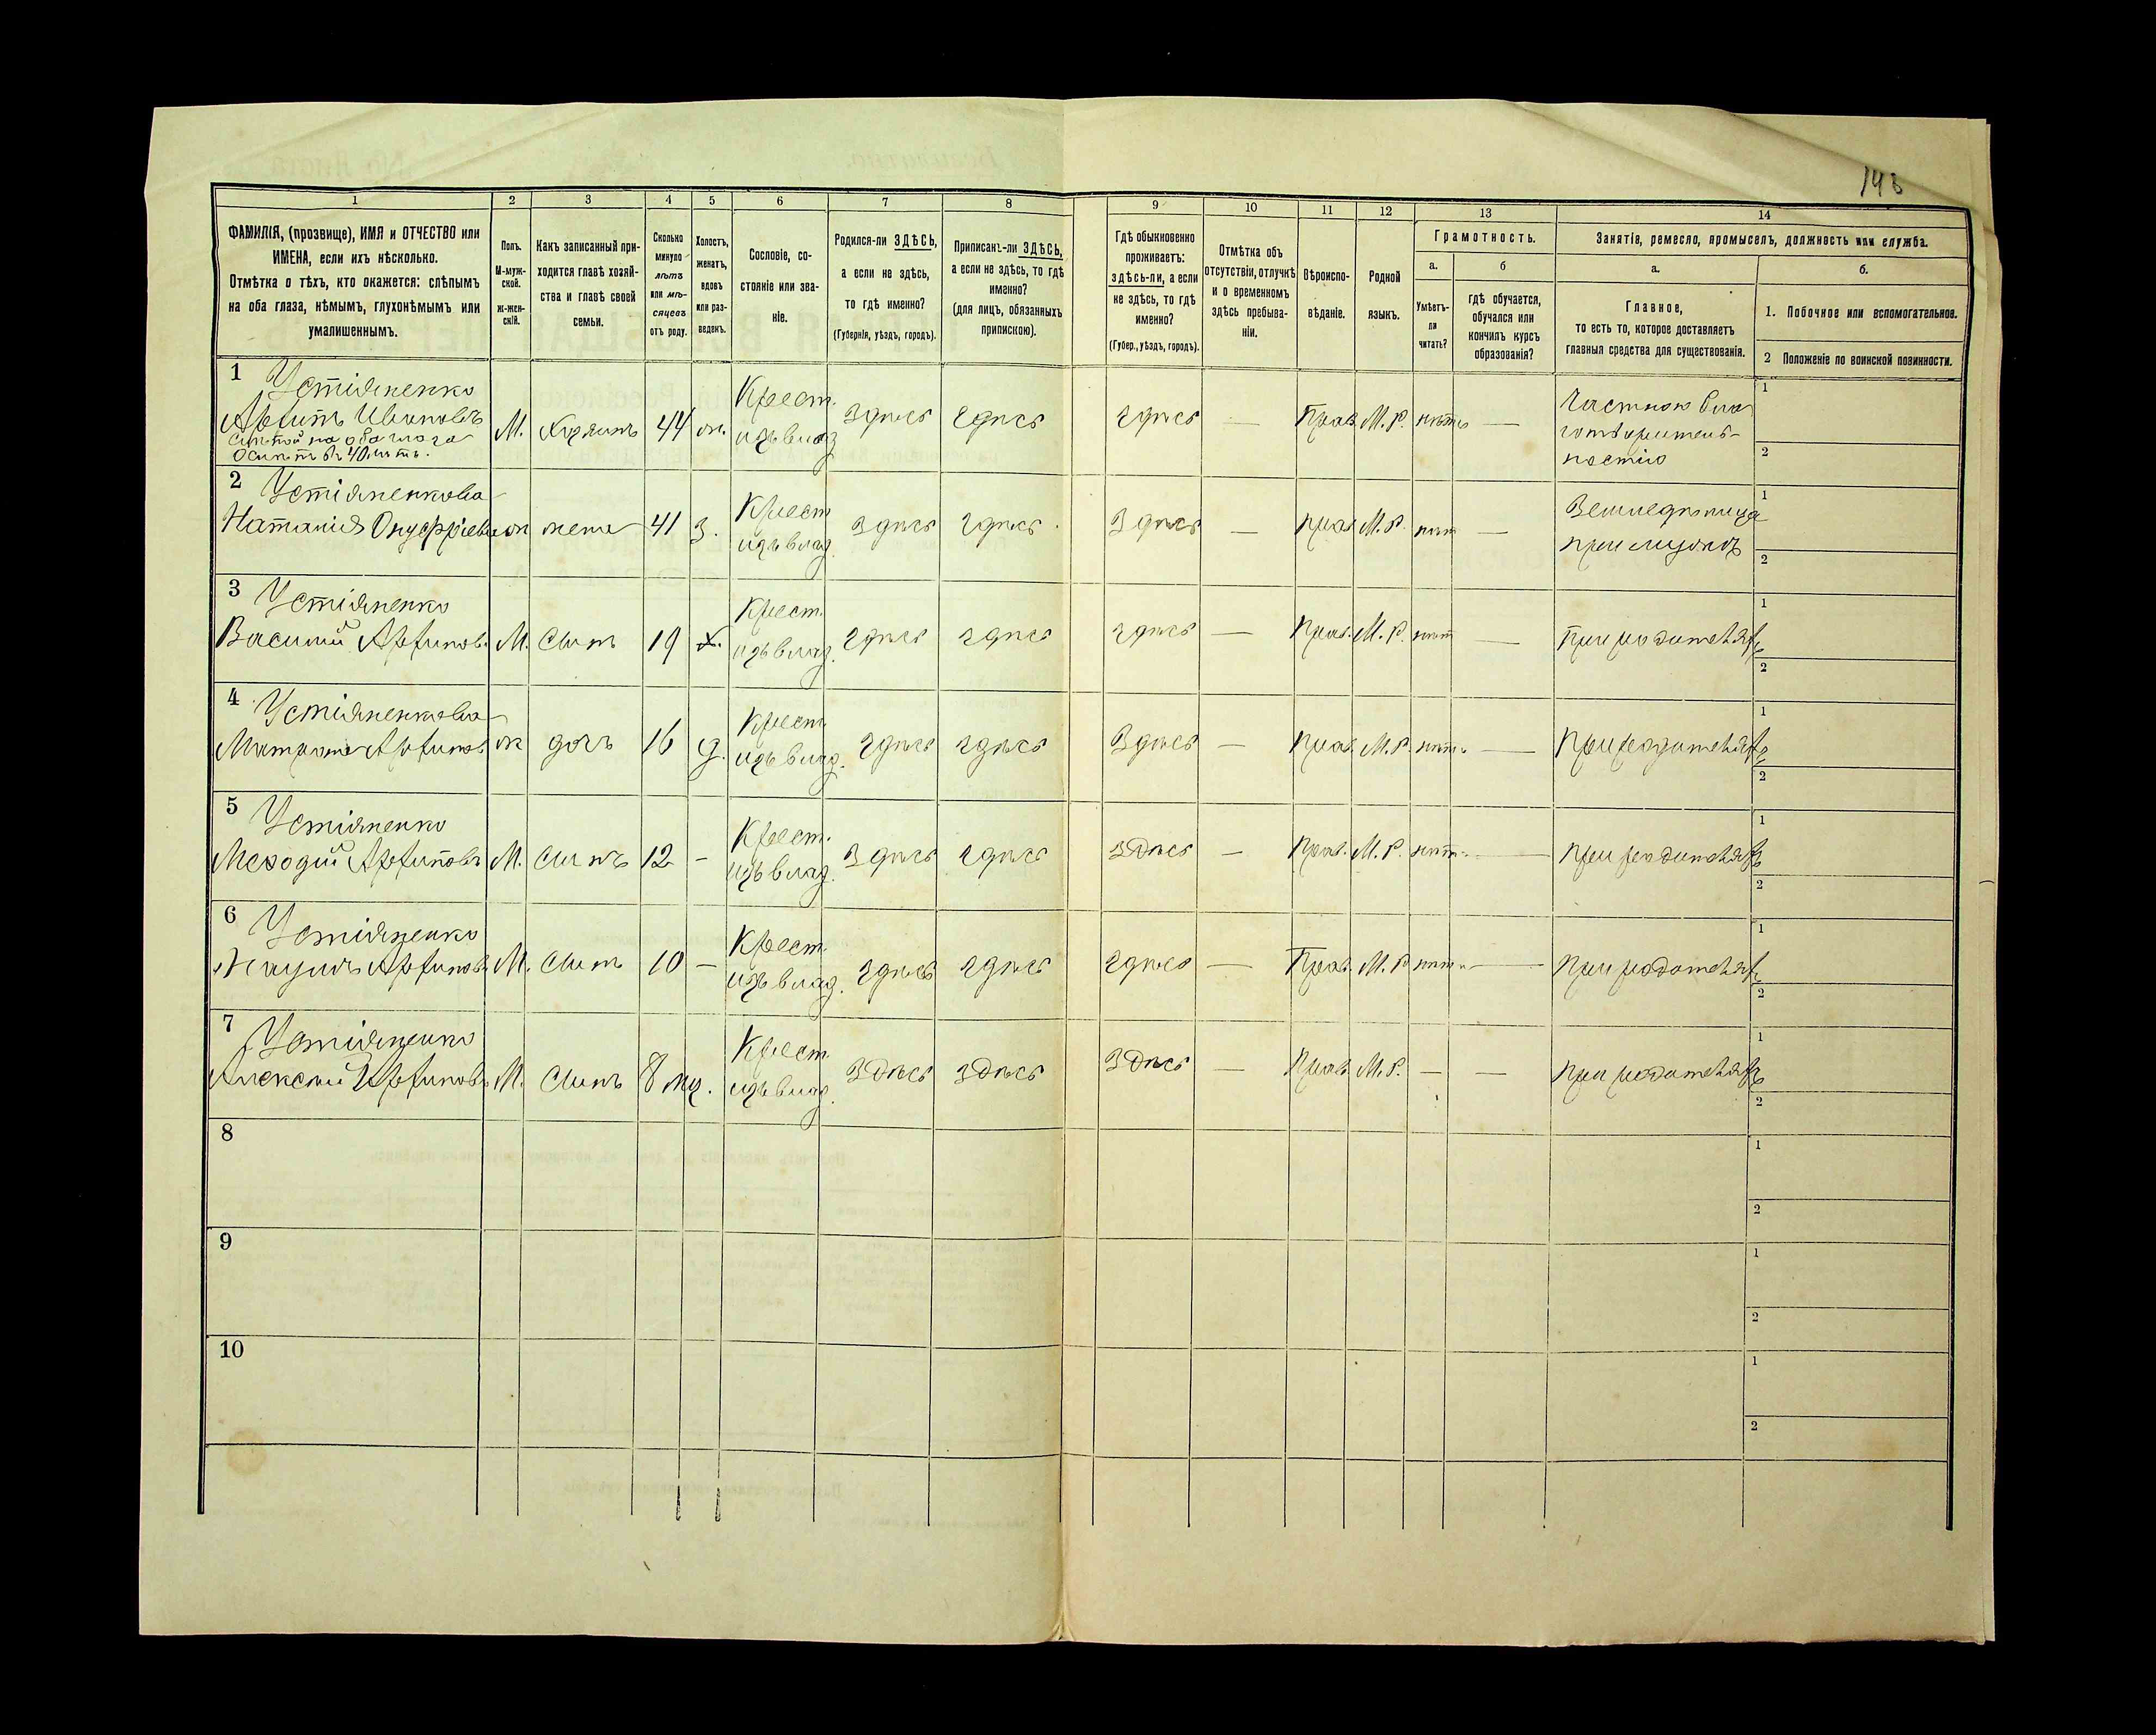 143
1
2
3
4
5
6
7
8
9
10
11
12
13
14
ФАМИЛІЯ, (прозвище), ИМЯ и ОТЧЕСТВО или
ИМЕНА, если ихъ нѣсколько.
Отмѣтка о тѣхъ, кто окажется: слѣпымъ
на оба глаза, нѣмымъ, глухонѣмымъ или
умалишеннымъ.
Полъ.
М-муж-
ской.
ж-жен-
скій.
Какъ записанный при-
ходится главѣ хозяй-
ства и главѣ своей
семьи.
Сколько
минуло
лѣтъ
или мѣ-
сяцевъ
отъ роду.
Холостъ,
женатъ,
вдовъ
или раз-
веденъ.
Сословіе, со-
стояніе или зва-
ніе.
Родился-ли ЗДѢСЬ,
а если не здѣсь,
то гдѣ именно?
(Губернія, уѣздъ, городъ).
Приписанъ-ли ЗДѢСЬ,
а если не здѣсь, то гдѣ
именно?
(для лицъ, обязанныхъ
припискою).
Гдѣ обыкновенно
проживаетъ:
здѣсь-ли, а если
не здѣсь, то гдѣ
именно?
(Губер., уѣздъ, городъ).
Отмѣтка объ
отсутствіи, отлучкѣ
и о временномъ
здѣсь пребыва-
ніи.
Вѣроиспо-
вѣданіе.
Родной
языкъ.
Грамотность.
а.
б
Умѣетъ-
ли
читать?
гдѣ обучается,
обучался или
кончилъ курсъ
образованія?
Занятіе, ремесло, промыселъ, должность или служба.
а.
б.
Главное,
то есть то, которое доставляетъ
главныя средства для существованія.
1. Побочное или вспомогательное.
2 Положеніе по воинской повинности.
1 Устіяненко
Архипъ Ивановъ
слѣпой на оба глаза
ослѣпъ въ 40 лѣтъ.
М. Хозяинъ 44 ж. Крест.
изъ влад. Здѣсь здѣсь здѣсь — Прав. М. Р. нѣтъ —
Частною бла
готворитель-
ностію
1
2
2 Устіяненкова
Наталія Онуфріева ж жена 41 З. Крест
изъ влад. Здѣсь здѣсь. Здѣсь — прав М. Р. нѣт —
Земледѣлица
при мужѣ
1
2
3 Устіяненко
Василій Архипов. М. Сынъ 19 х. Крест.
изъ влад. здѣсь здѣсь здѣсь — Прав. М. Р. нѣт —
При родителяхъ
1
2
4 Устіяненкова
Матрона Архипов. ж дочь 16 д. Крест.
изъ влад. здѣсь здѣсь Здѣсь — Прав. М. Р. нѣтъ —
При родителяхъ
1
2
5 Устіяненко
Меѳодій Архиповъ М. Сынъ 12 — Крест.
изъ влад. Здѣсь здѣсь здѣсь — Прав. М. Р. нѣтъ —
при родителяхъ
1
2
6 Устіяненко
Наумъ Архиповъ М. Сынъ 10 — Крест.
изъ влад. здѣсь здѣсь здѣсь — Прав. М. Р нѣтъ —
При родителяхъ
1
2
7 Устіяненко
Алексѣй Архиповъ М. Сынъ 8 мц. Крест
изъ влад. Здѣсь здѣсь Здѣсь — Прав. М. Р. — —
При родителяхъ
1
2
8
1
2
9
1
2
10
1
2